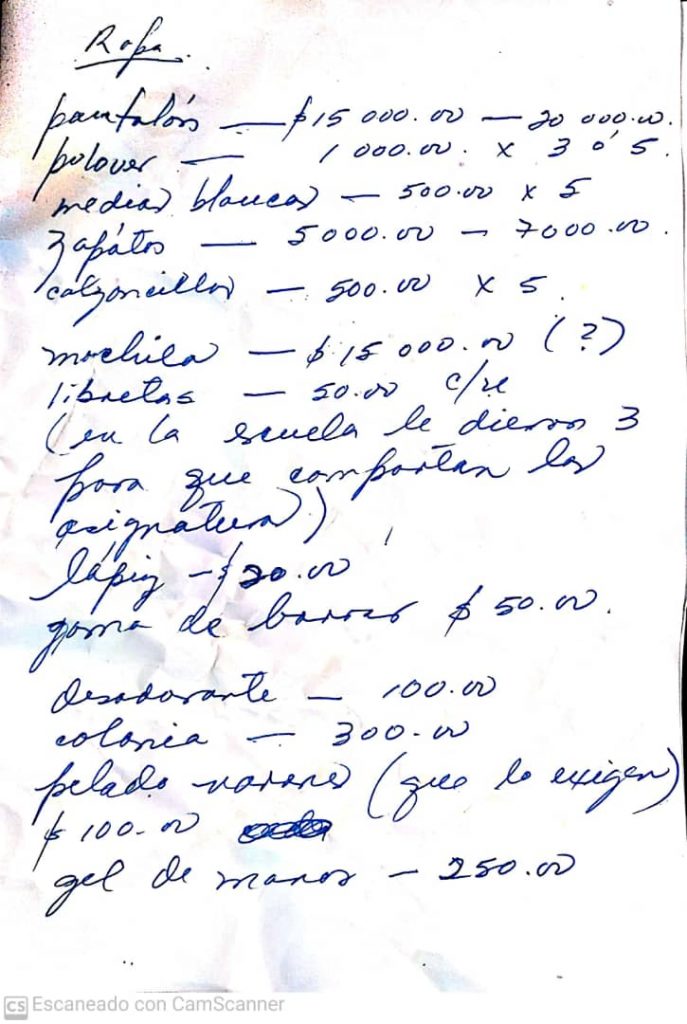 Ropa.
pantalón — $15 000.00 — 20 000.00.
pulover — 1 000.00. x 3 ó 5.
medias blancas — 500.00 x 5
zapátos — 5000.00 — 7000.00.
calzoncillos — 500.00 x 5.
mochila — $15 000.00 (?)
libretas — 50.00 c/u
(en la escuela le dieron 3
para que compartan las
asignatura)
lápiz — $20.00
goma de borrar $50.00.
desodorante — 100.00
colonia — 300.00
pelado varones (que lo exigen)
$100.00
gel de manos — 250.00
CS Escaneado con CamScanner